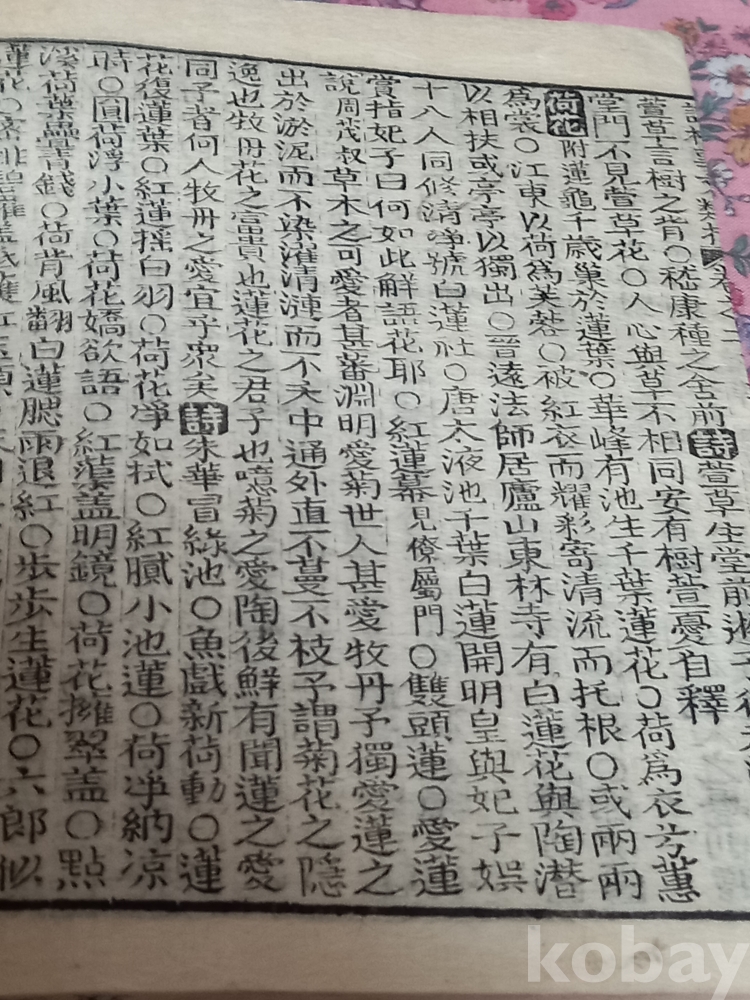 萱草言樹之背○嵇康種之舍前詩萱草生堂前遊子行天
堂門不見萱草花○人心與草不相同安有樹萱憂自釋
荷花附蓮龜千歲巢於蓮葉○華峰有池生千葉蓮花○荷爲衣芳蕙
爲裳○江東以荷爲芙蓉○被紅衣而耀彩寄清流而托根○或兩兩
以相扶或亭亭以獨出○晉遠法師居廬山東林寺有白蓮花與陶潛
十八人同修清淨號白蓮社○唐太液池千葉白蓮開明皇與妃子娛
賞指妃子曰何如此解語花耶○紅蓮幕見僚屬門○雙頭蓮○愛蓮
說周茂叔草木之可愛者甚蕃淵明愛菊世人甚愛牧丹予獨愛蓮之
出於淤泥而不染濯清漣而不夭中通外直不蔓不枝予謂菊花之隱
逸也牧丹花之富貴也蓮花之君子也噫菊之愛陶後鮮有聞蓮之愛
同予者何人牧丹之愛宜乎衆矣詩朱華冒綠池○魚戲新荷動○蓮
花復蓮葉○紅蓮搖白羽○荷花淨如拭○紅膩小池蓮○荷淨納凉
時○圓荷浮小葉○荷花嬌欲語○紅蕖盖明鏡○荷花擁翠盖○點
溪荷葉疊靑錢○荷背風翻白蓮腮雨退紅○步步生蓮花○六郎似
蓮花
kobay